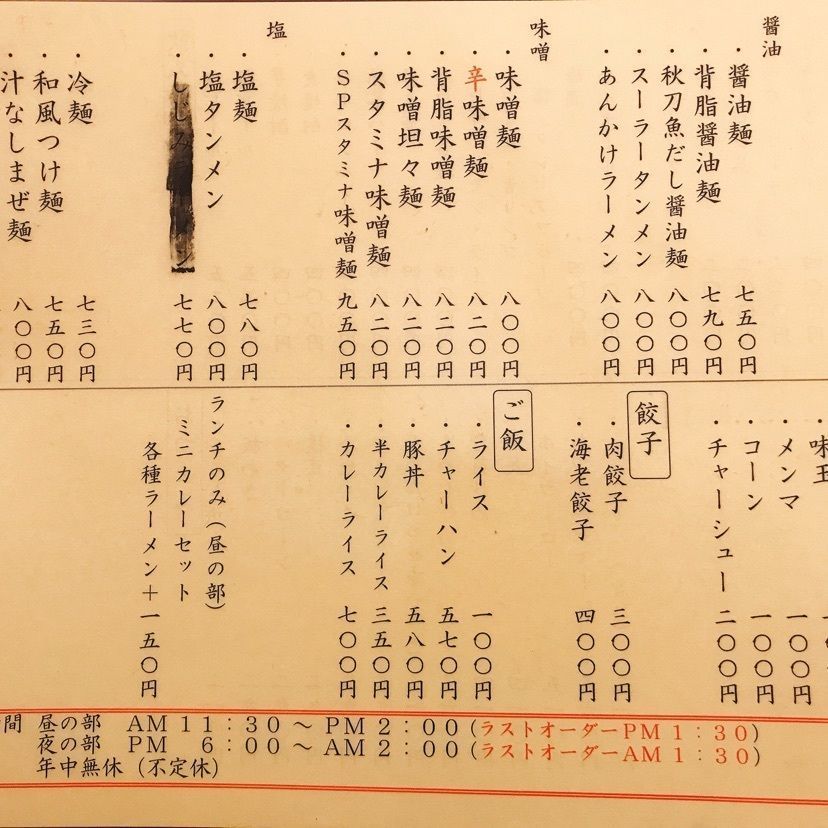 醤油
・醤油麺 七五〇円
・背脂醤油麺 七九〇円
・秋刀魚だし醤油麺 八〇〇円
・スーラータンメン 八〇〇円
・あんかけラーメン 八〇〇円
味噌
・味噌麺 八〇〇円
・辛味噌麺 八二〇円
・背脂味噌麺 八二〇円
・味噌坦々麺 八二〇円
・スタミナ味噌麺 八二〇円
・SPスタミナ味噌麺 九五〇円
塩
・塩麺 七八〇円
・塩タンメン 八〇〇円
・しじみ ン 七七〇円
・冷麺 七三〇円
・和風つけ麺 七五〇円
・汁なしまぜ麺 八〇〇円
・味玉
・メンマ 一〇〇円
・コーン 一〇〇円
・チャーシュー 二〇〇円
餃子
・肉餃子 三〇〇円
・海老餃子 四〇〇円
ご飯
・ライス 一〇〇円
・チャーハン 五七〇円
・豚丼 五八〇円
・半カレーライス 三五〇円
・カレーライス 七〇〇円
ランチのみ(昼の部)
ミニカレーセット
各種ラーメン+一五〇円
間 昼の部 AM11:30〜PM2:00(ラストオーダーPM1:30)
夜の部 PM 6:00〜AM2:00(ラストオーダーAM1:30)
年中無休(不定休)